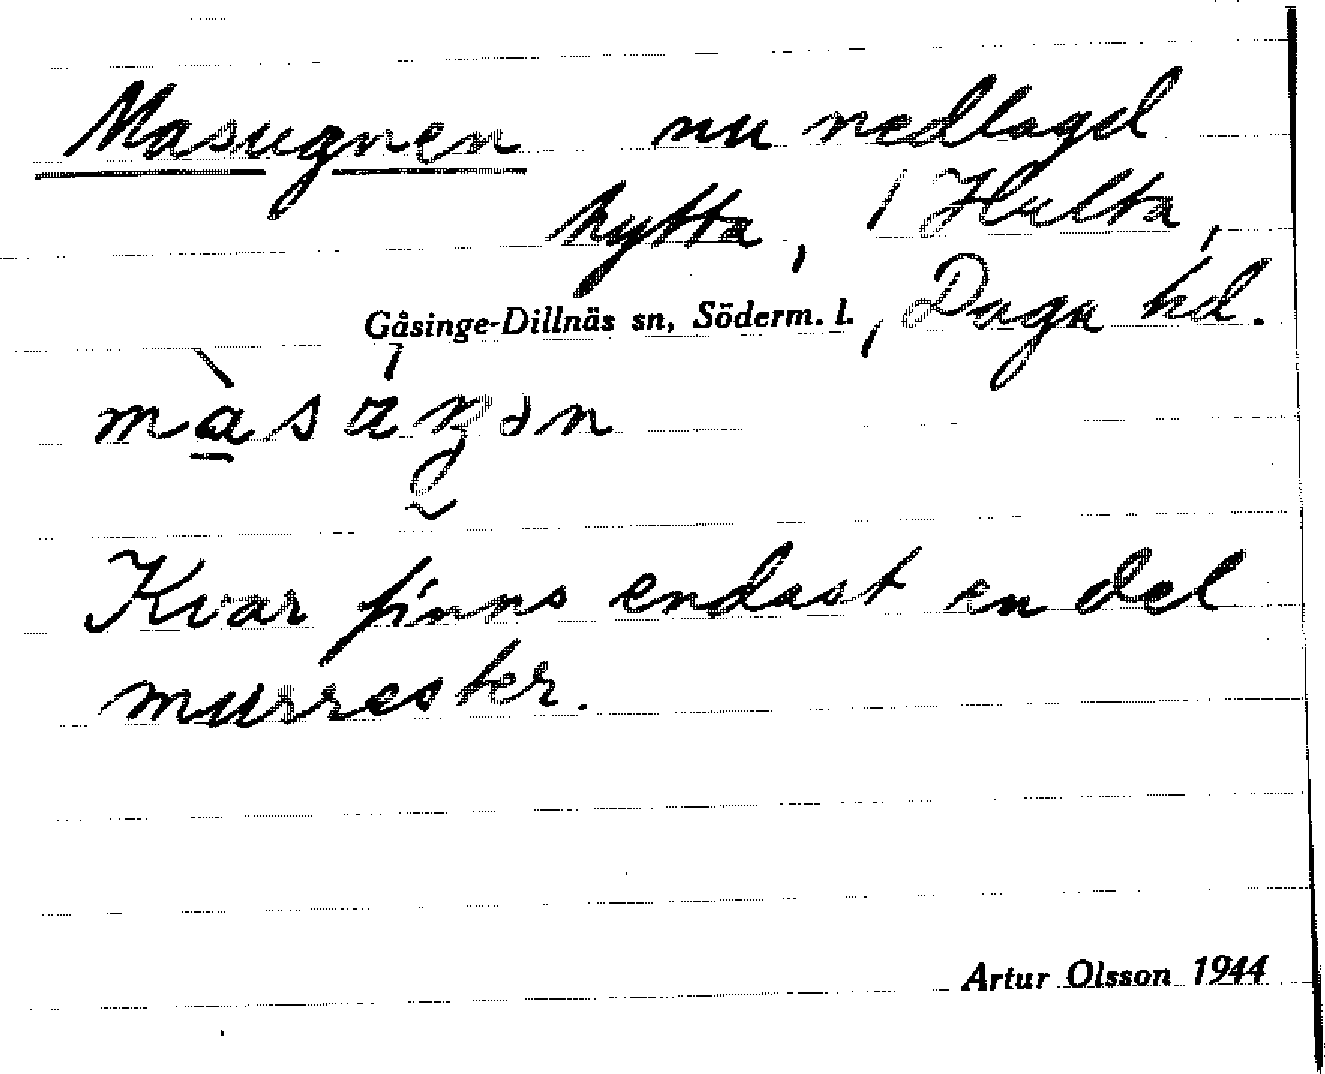 Masugnen nu nedlagd
hytta, i Hulta,
Gåsinge-Dillnäs sn, Söderm. l., Daga hd.
Kvar finns endast en del
murrester.
Artur Olsson 1944